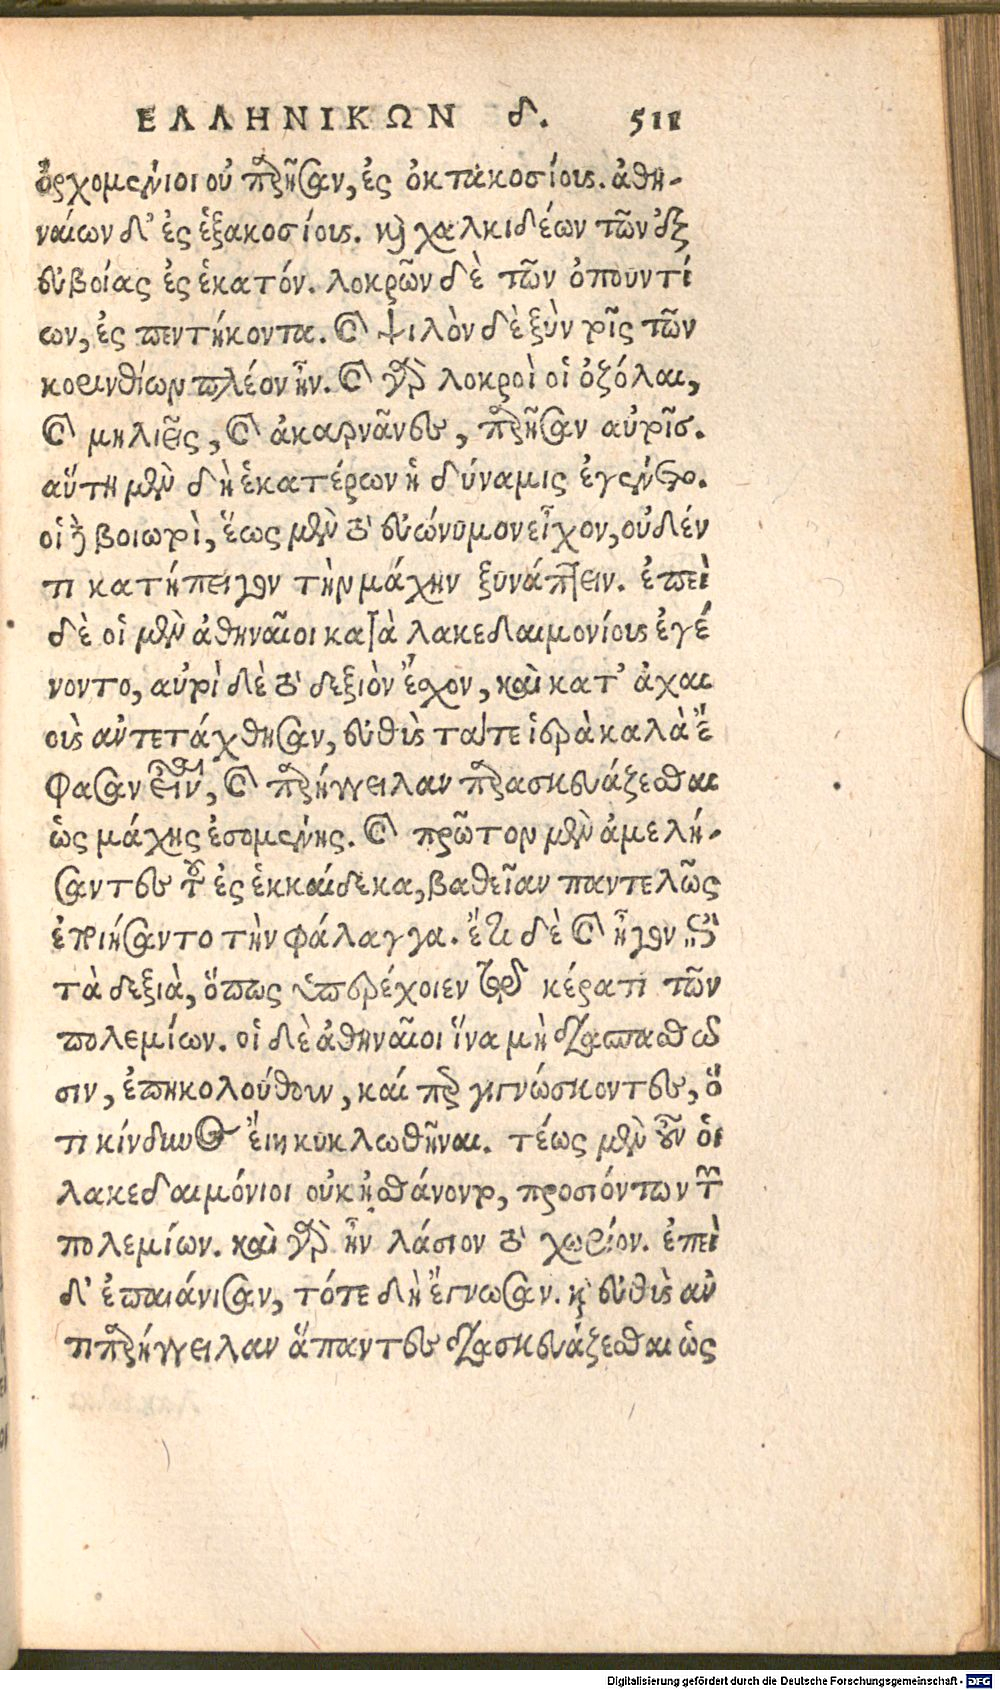 ΕΛΛΗΝΙΚΩΝ δ. 511
ὀρχομένιοι οὐ παρῆσαν, ἐς ὀκτακοσίους. ἀθη-
ναίων δ' ἐς ἑξακοσίους. καὶ χαλκιδέων τῶν ἐξ
εὐβοίας ἐς ἑκατόν. λοκρῶν δὲ τῶν ὀπουντί
ων, ἐς πεντήκοντα. καὶ ψιλὸν δὲ ξὺν τοῖς τῶν
κορινθίων πλέον ἦν. καὶ γὰρ λοκροὶ οἱ ὀζόλαι,
καὶ μηλιεῖς, καὶ ἀκαρνᾶνες, παρῆσαν αὐτοῖς.
αὕτη μὲν δὴ ἑκατέρων ἡ δύναμις ἐγένετο.
οἱ δὲ βοιωτοὶ, ἕως μὲν τὸ εὐώνυμον εἶχον, οὐδέν
τι κατήπειγον τὴν μάχην ξυνάπτειν. ἐπεὶ
δὲ οἱ μὲν ἀθηναῖοι κατὰ λακεδαιμονίους ἐγέ
νοντο, αὐτοὶ δὲ τὸ δεξιὸν ἔσχον, καὶ κατ' ἀχαι
οὺς ἀντετάχθησαν, εὐθὺς τά τε ἱερὰ καλὰ ἔ
φασαν εἶναι, καὶ παρήγγειλαν παρασκευάζεσθαι
ὡς μάχης ἐσομένης. καὶ πρῶτον μὲν ἀμελή-
σαντες τοῦ ἐς ἑκκαίδεκα, βαθεῖαν παντελῶς
ἐποιήσαντο τὴν φάλαγγα. ἔτι δὲ καὶ ἦγον ἐπὶ
τὰ δεξιὰ, ὅπως ὑπερέχοιεν τῷ κέρατι τῶν
πολεμίων. οἱ δὲ ἀθηναῖοι ἵνα μὴ διασπασθῶ
σιν, ἐπηκολούθουν, καί περ γιγνώσκοντες, ὅ
τι κίνδυνος εἴη κυκλωθῆναι. τέως μὲν οὖν οἱ
λακεδαιμόνιοι οὐκ ᾐσθάνοντο, προσιόντων τῶν
πολεμίων. καὶ γὰρ ἦν λάσιον τὸ χωρίον. ἐπεὶ
δ' ἐπαιάνισαν, τότε δὴ ἔγνωσαν. καὶ εὐθὺς ἀν
τιπαρήγγειλαν ἅπαντες διασκευάζεσθαι ὡς
Digitalisierung gefördert durch die Deutsche Forschungsgemeinschaft - DFG